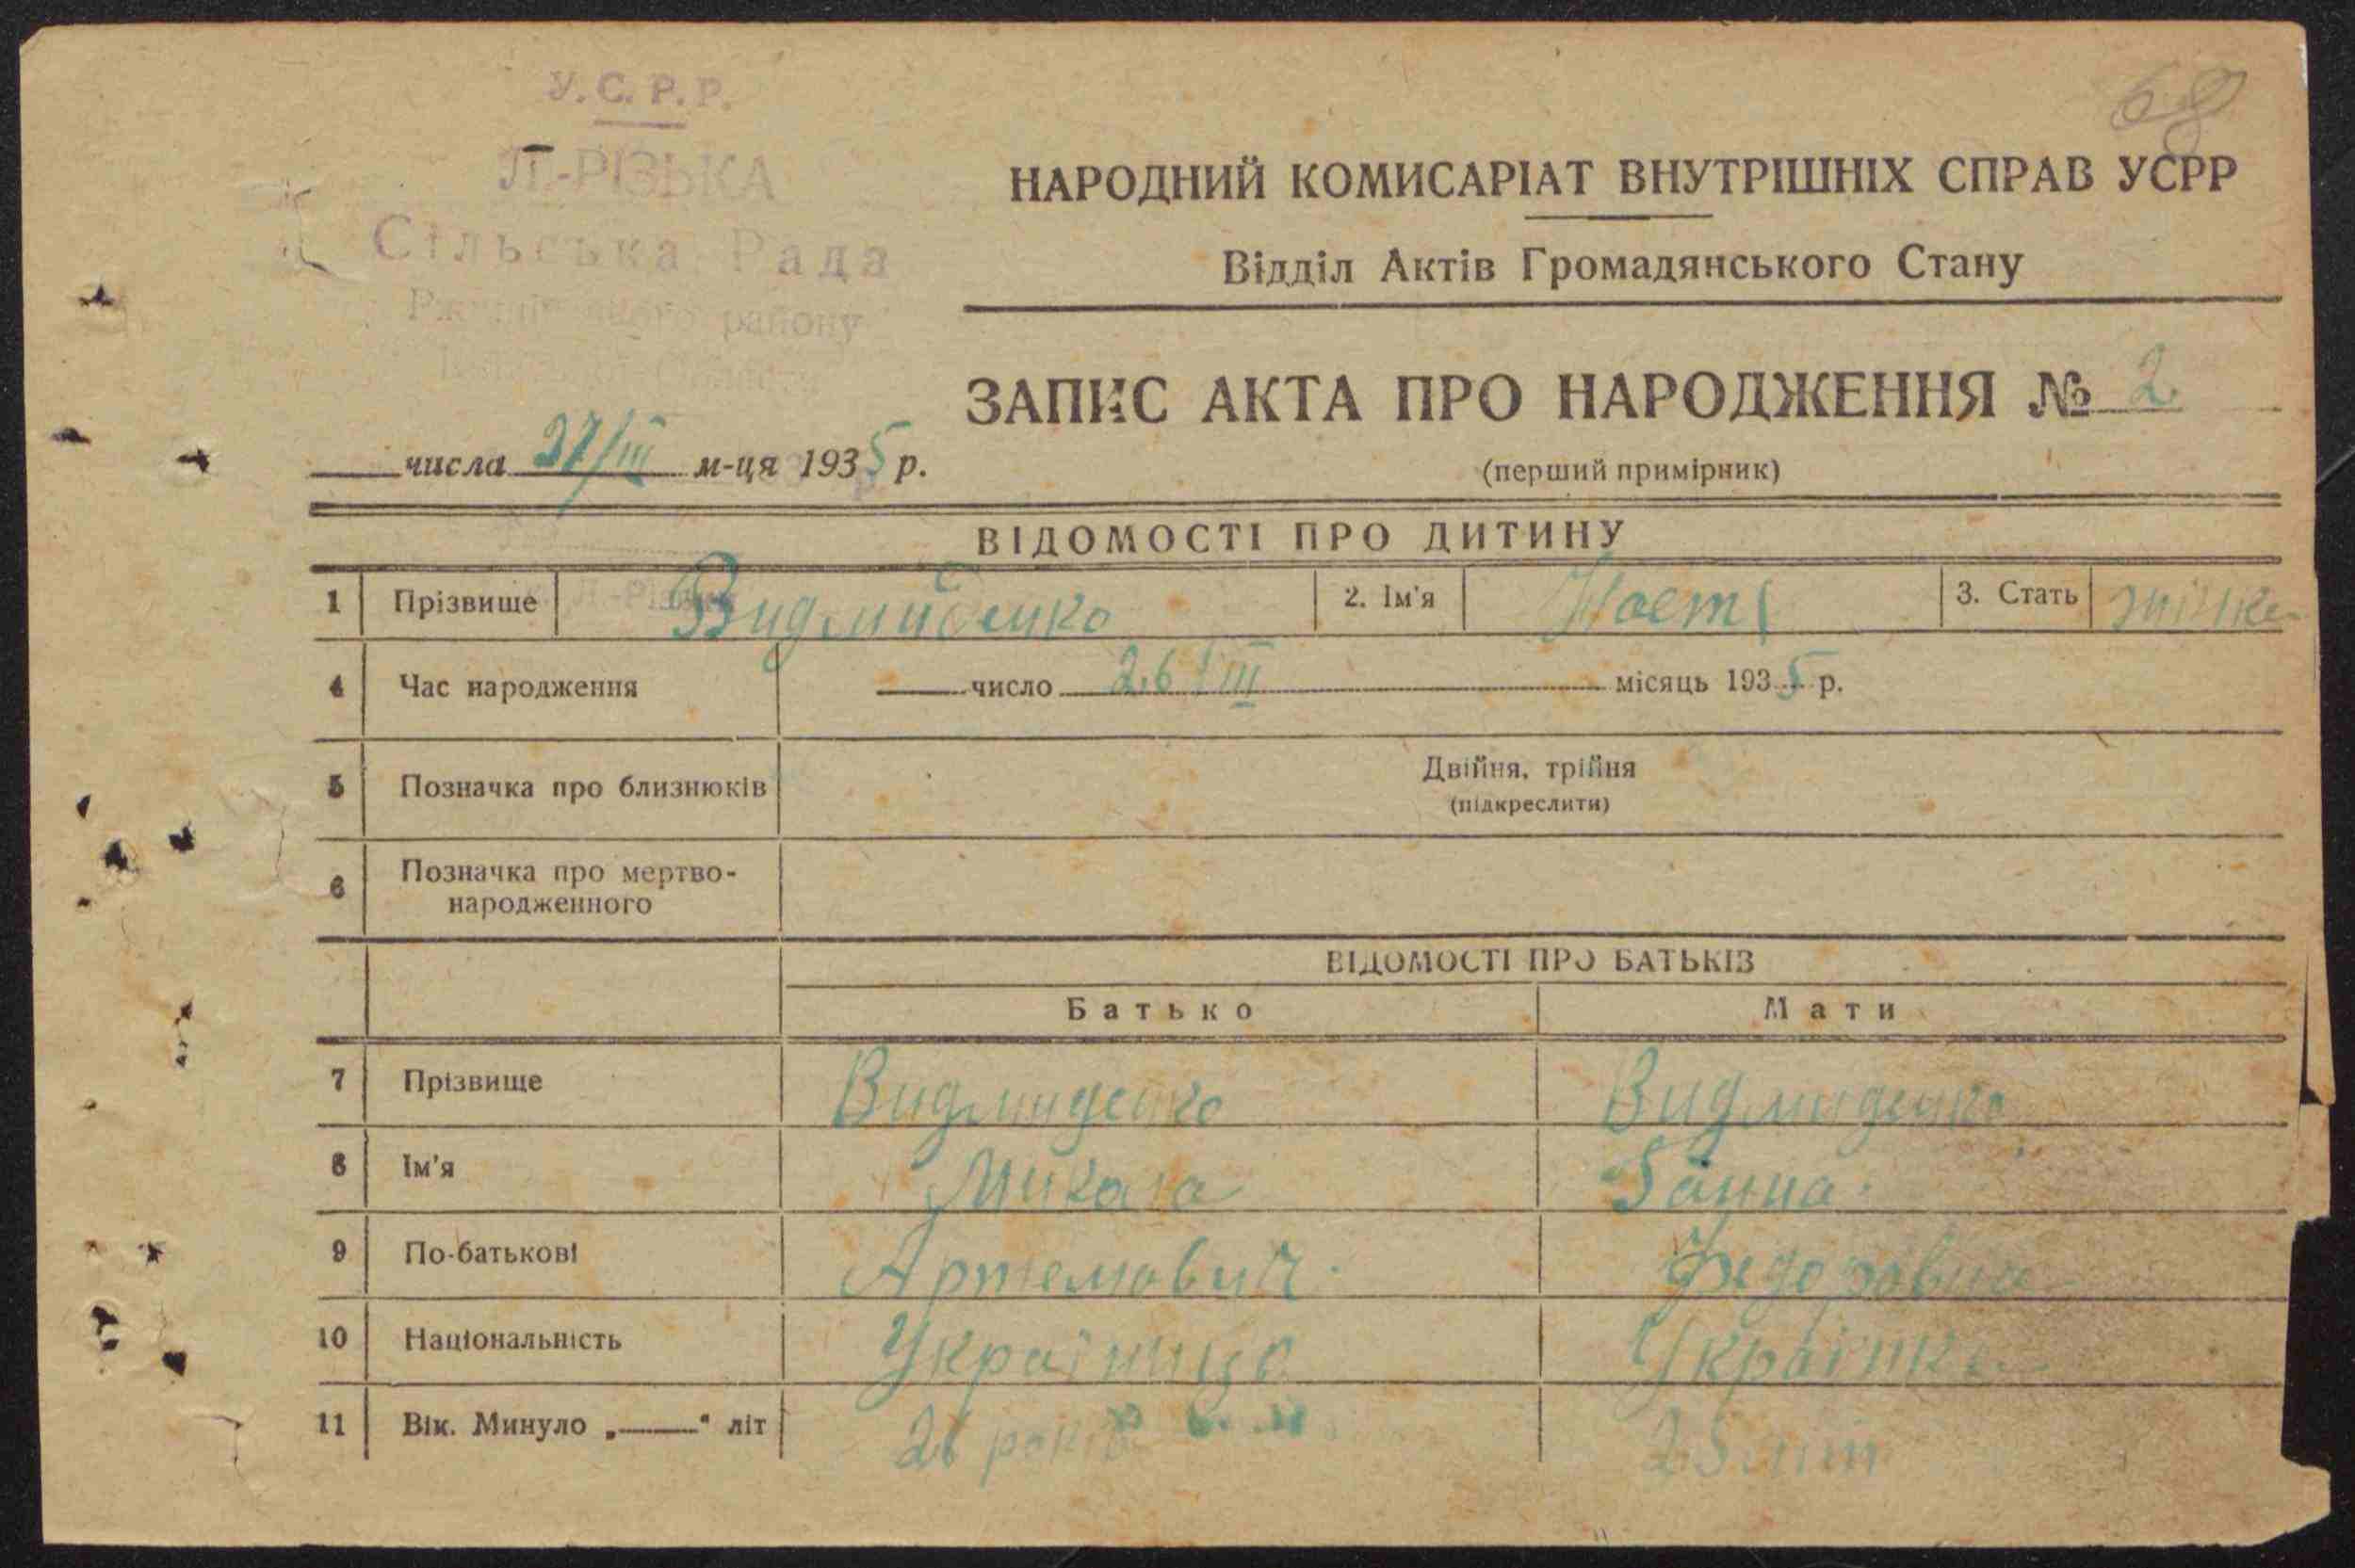 68
У.С.Р.Р.
Л.-РІЗЬКА
Сільська Рада
району
НАРОДНИЙ КОМИСАРІАТ ВНУТРІШНІХ СПРАВ УСРР
Відділ Актів Громадянського Стану
ЗАПИС АКТА ПРО НАРОДЖЕННЯ № 2
(перший примірник)
числа 27/III м-ця 1935 р.
ВІДОМОСТІ ПРО ДИТИНУ
1 Прізвище Видмиденко 2. Ім'я 3. Стать жіноче
4 Час народження число 26/III місяць 1935 р.
5 Позначка про близнюків Двійня, трійня
(підкреслити)
6 Позначка про мертво-
народженного
ВІДОМОСТІ ПРО БАТЬКІВ
Батько Мати
7 Прізвище Видмиденко Видмиденко
8 Ім'я Микола Ганна
9 По-батькові Артемович Федоровна
10 Національність Українець Українка
11 Вік. Минуло „——" літ 26 років 25 літ